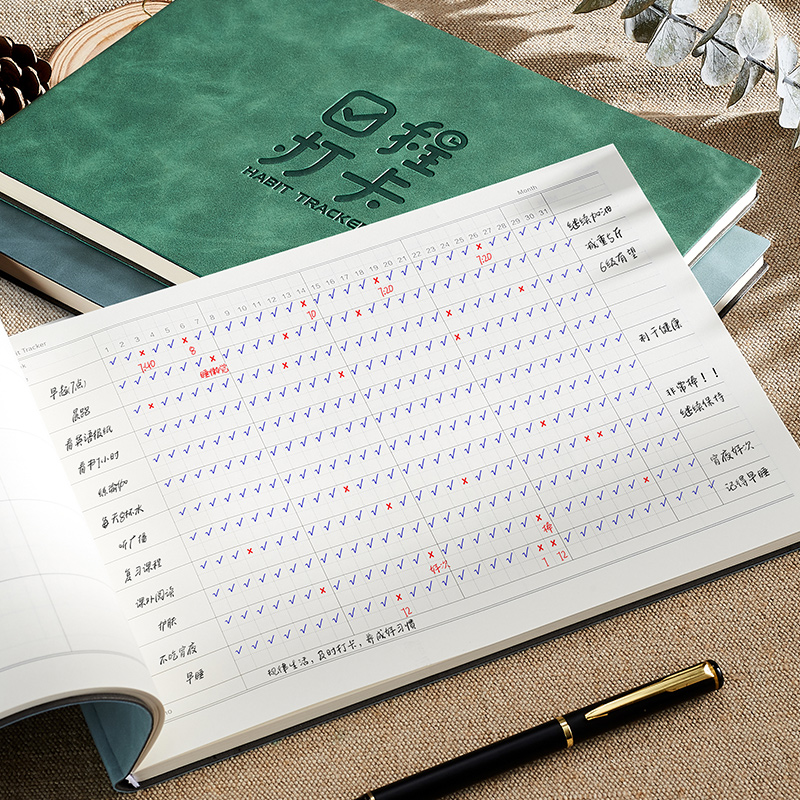 日程
打卡
HABIT TRACKER
Month
bit Tracker
1 2 3 4 5 6 7 8 9 10 11 12 13 14 15 16 17 18 19 20 21 22 23 24 25 26 27 28 29 30 31
继续加油
早起(7点)
7:40
8
10
7:20
7:20
减重5斤
6级有望
晨跑
睡懒觉
看英语报纸
看书1小时
利于健康
练瑜伽
每天8杯水
非常棒!!
继续保持
听广播
复习课程
课外阅读
护肤
不吃宵夜
好次
宵夜好次
早睡
12
1
12
记得早睡
规律生活,及时打卡,养成好习惯